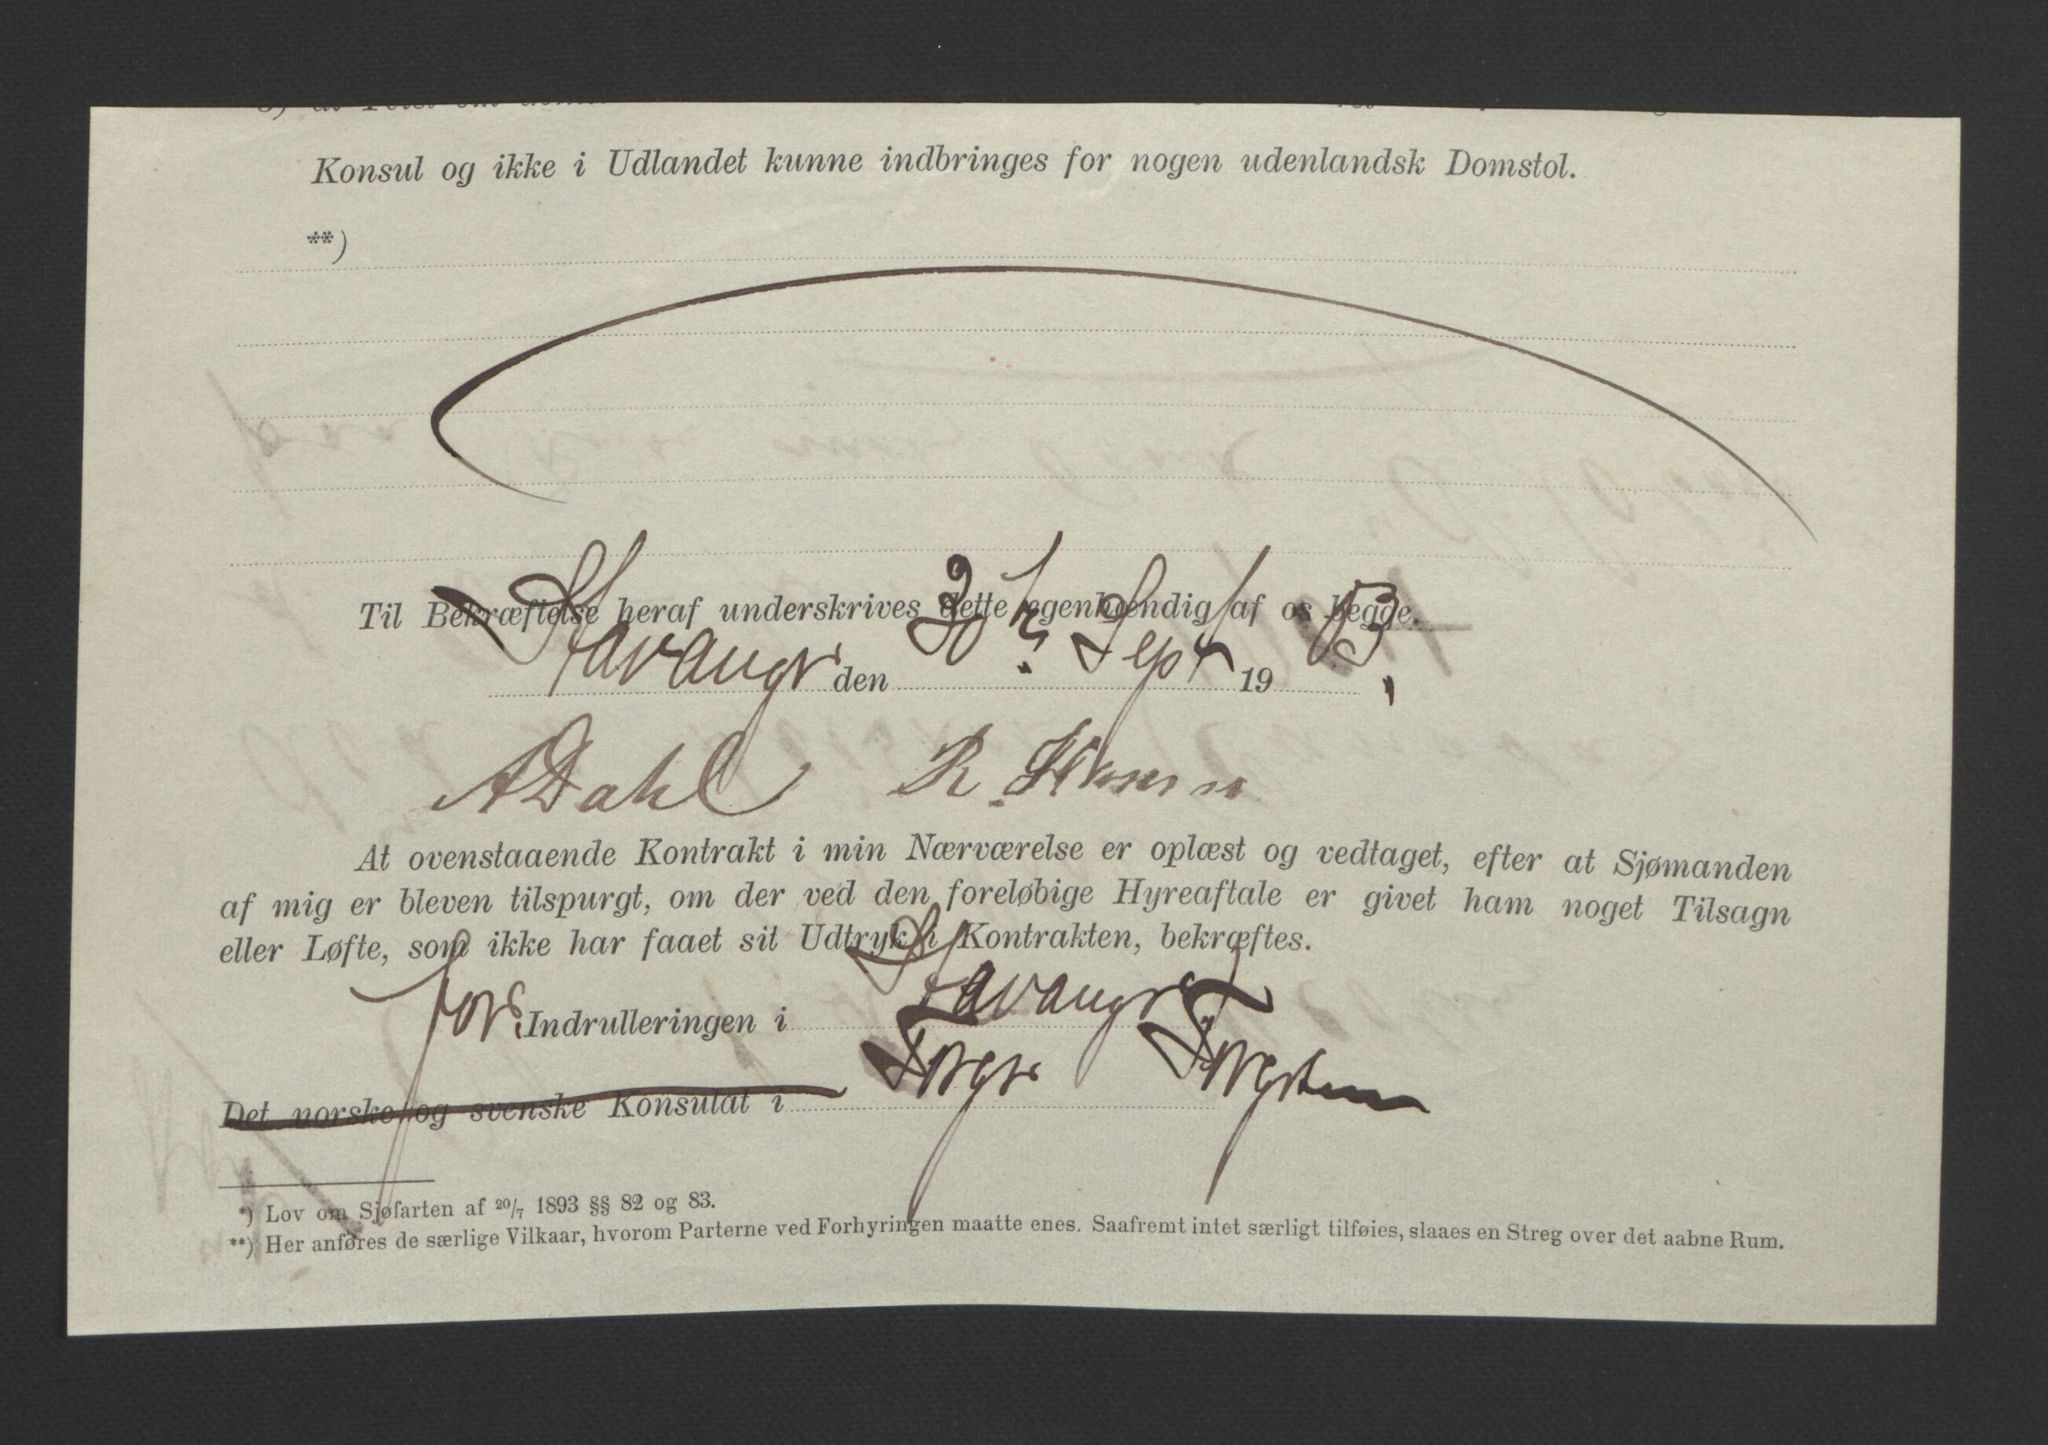 Konsul og ikke i Udlandet kunne indbringes for nogen udenlandsk Domstol.
**)
Til Bekræftelse heraf underskrives dette egenhændig af os begge.
Stavanger den Sept 1903.
A Dahl R. Hansen
At ovenstaaende Kontrakt i min Nærværelse er oplæst og vedtaget, efter at Sjømanden
af mig er bleven tilspurgt, om der ved den foreløbige Hyreaftale er givet ham noget Tilsagn
eller Løfte, som ikke har faaet sit Udtryk i Kontrakten, bekræftes.
For Indrulleringen i Stavanger
Det norske og svenske Konsulat i
*) Lov om Sjøfarten af 20/7 1893 §§ 82 og 83.
**) Her anføres de særlige Vilkaar, hvorom Parterne ved Forhyringen maatte enes. Saafremt intet særligt tilføies, slaaes en Streg over det aabne Rum.